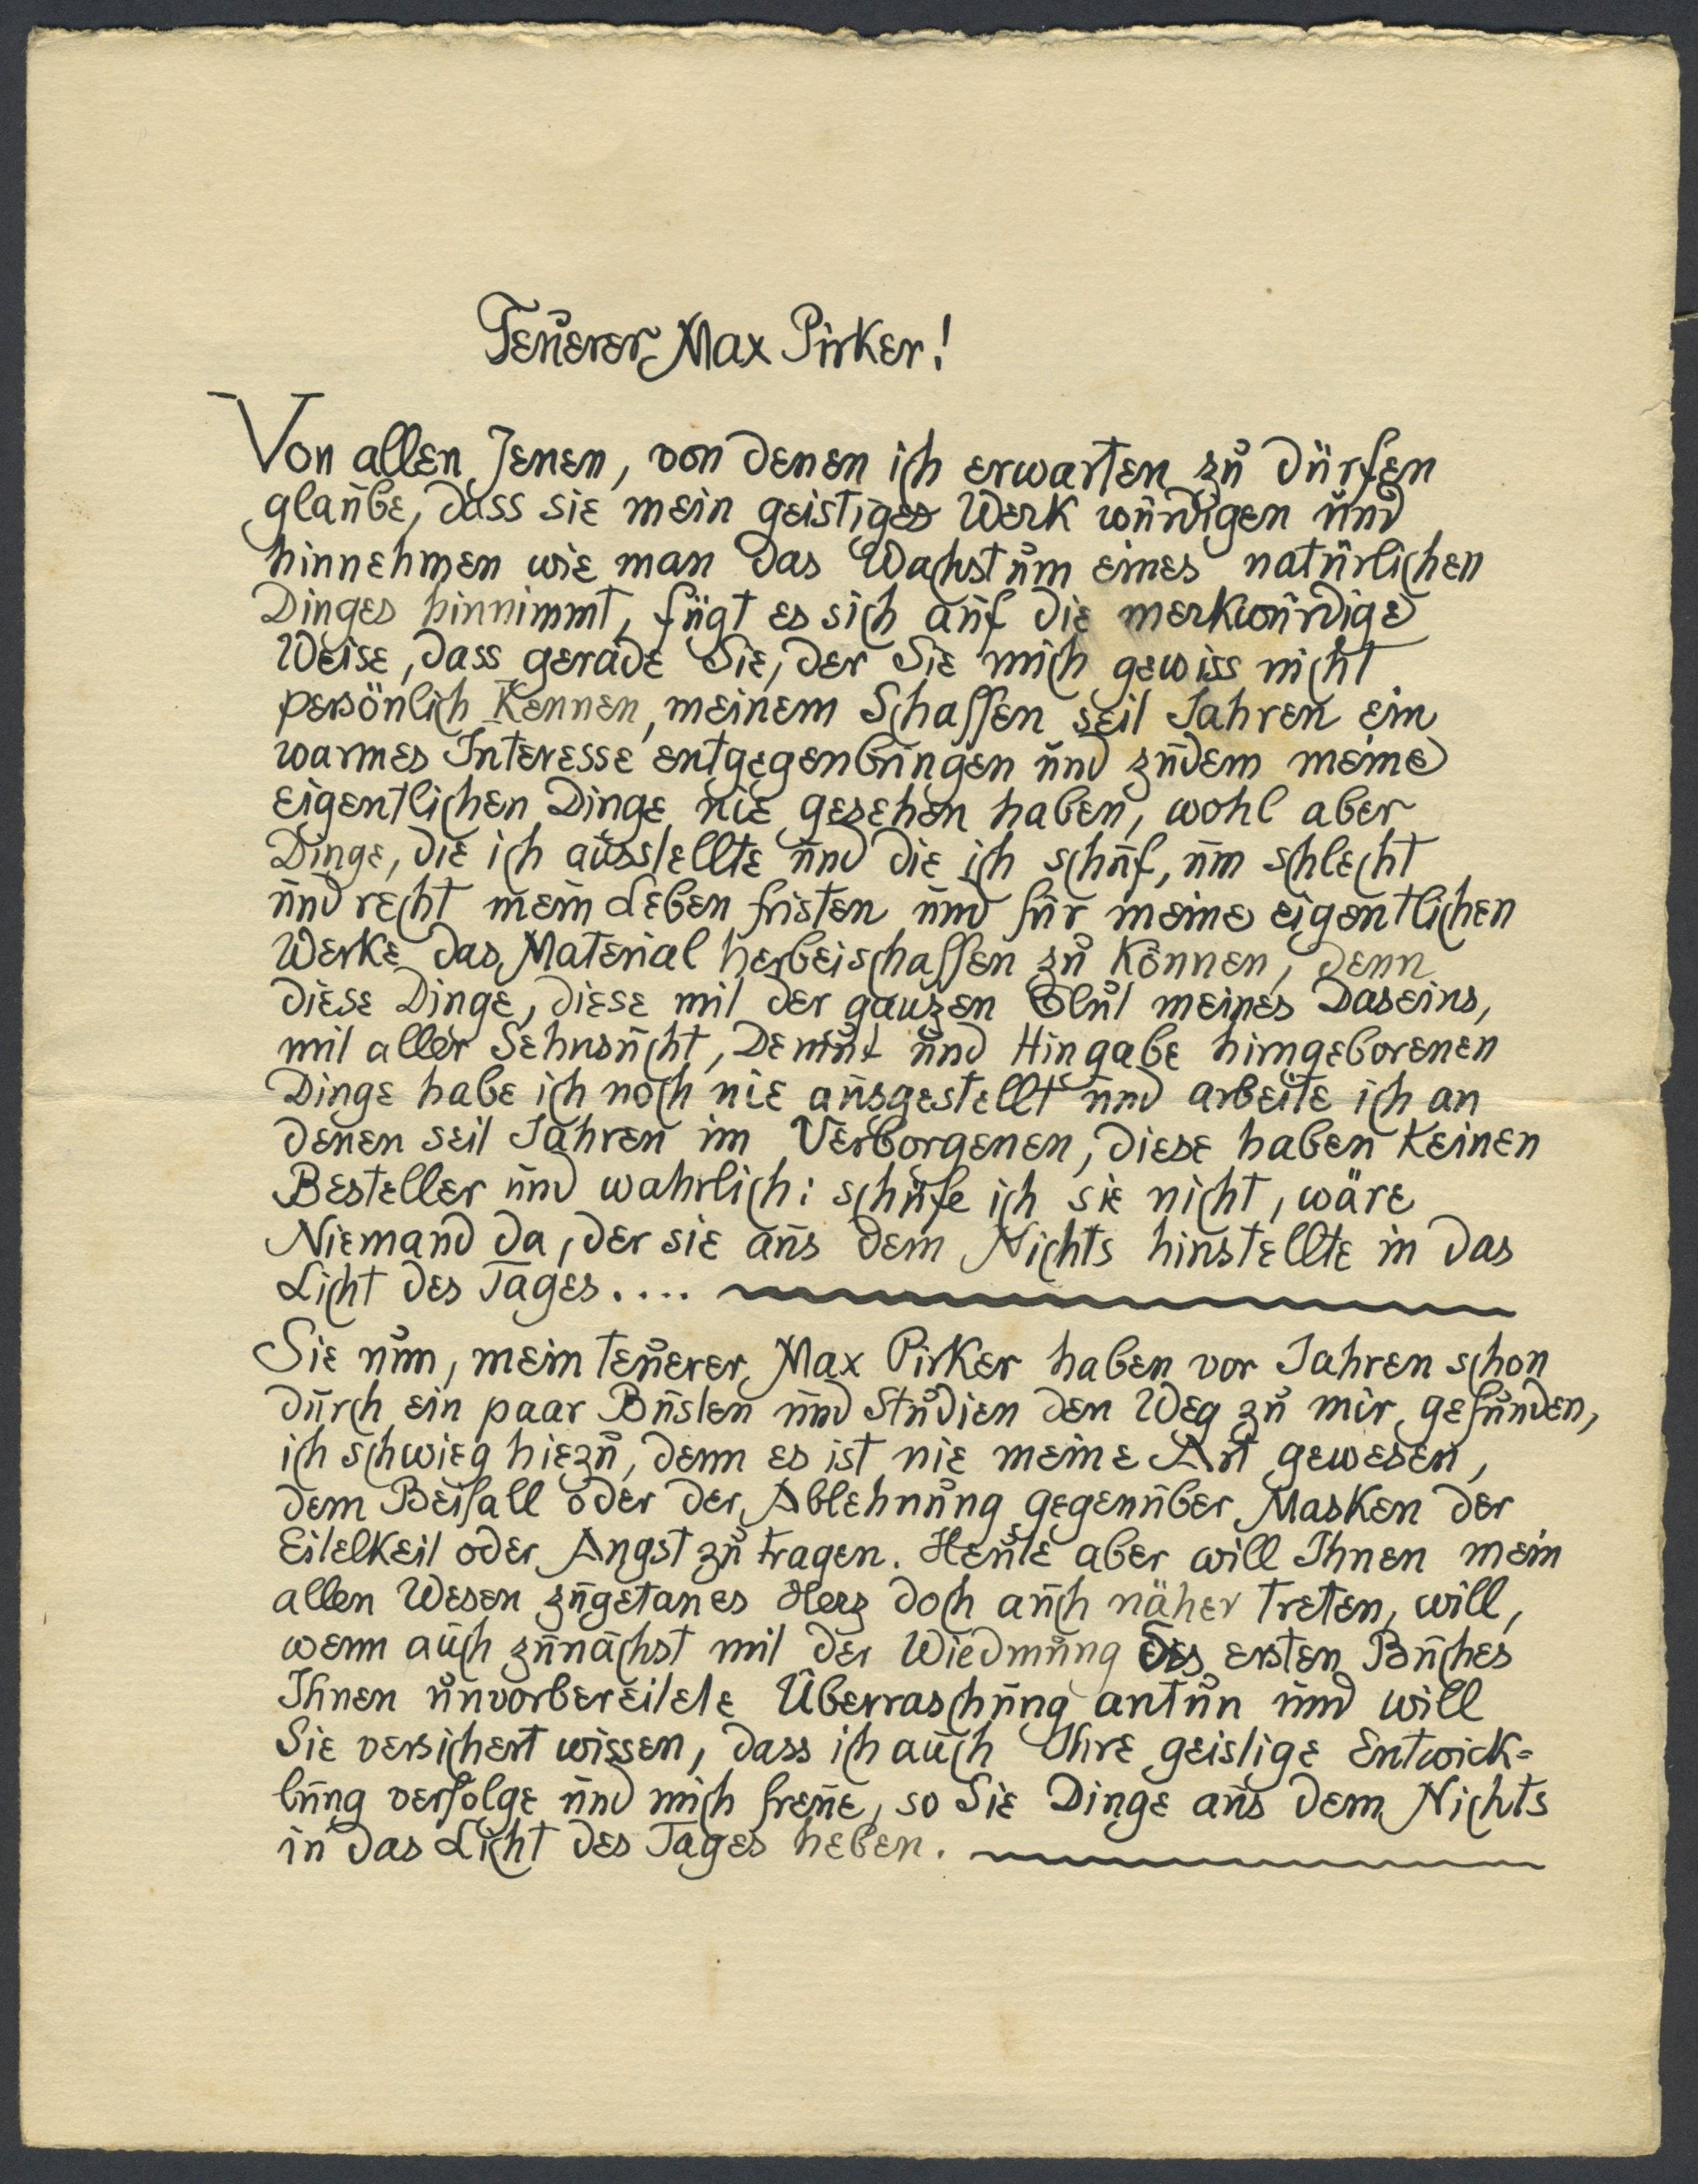 Teuerer Max Pirker!
Von allen Jenen, von denen ich erwarten zu dürfen
glaube, dass sie mein geistiges Werk würdigen und
hinnehmen wie man das Wachstum eines natürlichen
Dinges hinnimmt, fügt es sich auf die merkwürdige
Weise, dass gerade Sie, der Sie mich gewiss nicht
persönlich kennen, meinem Schaffen seit Jahren ein
warmes Interesse entgegenbringen und zudem meine
eigentlichen Dinge nie gesehen haben, wohl aber
Dinge, die ich ausstellte und die ich schuf, um schlecht
und recht mein Leben fristen und für meine eigentlichen
Werke das Material herbeischaffen zu können, denn
diese Dinge, diese mit der ganzen Glut meines Daseins,
mit aller Sehnsucht, Demut und Hingabe hingeborenen
Dinge habe ich noch nie ausgestellt und arbeite ich an
denen seit Jahren im Verborgenen, diese haben keinen
Besteller und wahrlich: schüfe ich sie nicht, wäre
Niemand da, der sie aus dem Nichts hinstellte in das
Licht des Tages....
Sie nun, mein teuerer Max Pirker haben vor Jahren schon
durch ein paar Büsten und Studien den Weg zu mir gefunden,
ich schwieg hiezu, denn es ist nie meine Art gewesen,
dem Beifall oder der Ablehnung gegenüber Masken der
Eitelkeit oder Angst zu tragen. Heute aber will Ihnen mein
allen Wesen zugetanes Herz doch auch näher treten, will,
wenn auch zunächst mit der Wiedmung des ersten Buches
Ihnen unvorbereitete Überraschung antun und will
Sie versichert wissen, dass ich auch Ihre geistige Entwick=
lung verfolge und mich freue, so Sie Dinge aus dem Nichts
in das Licht des Tages heben.